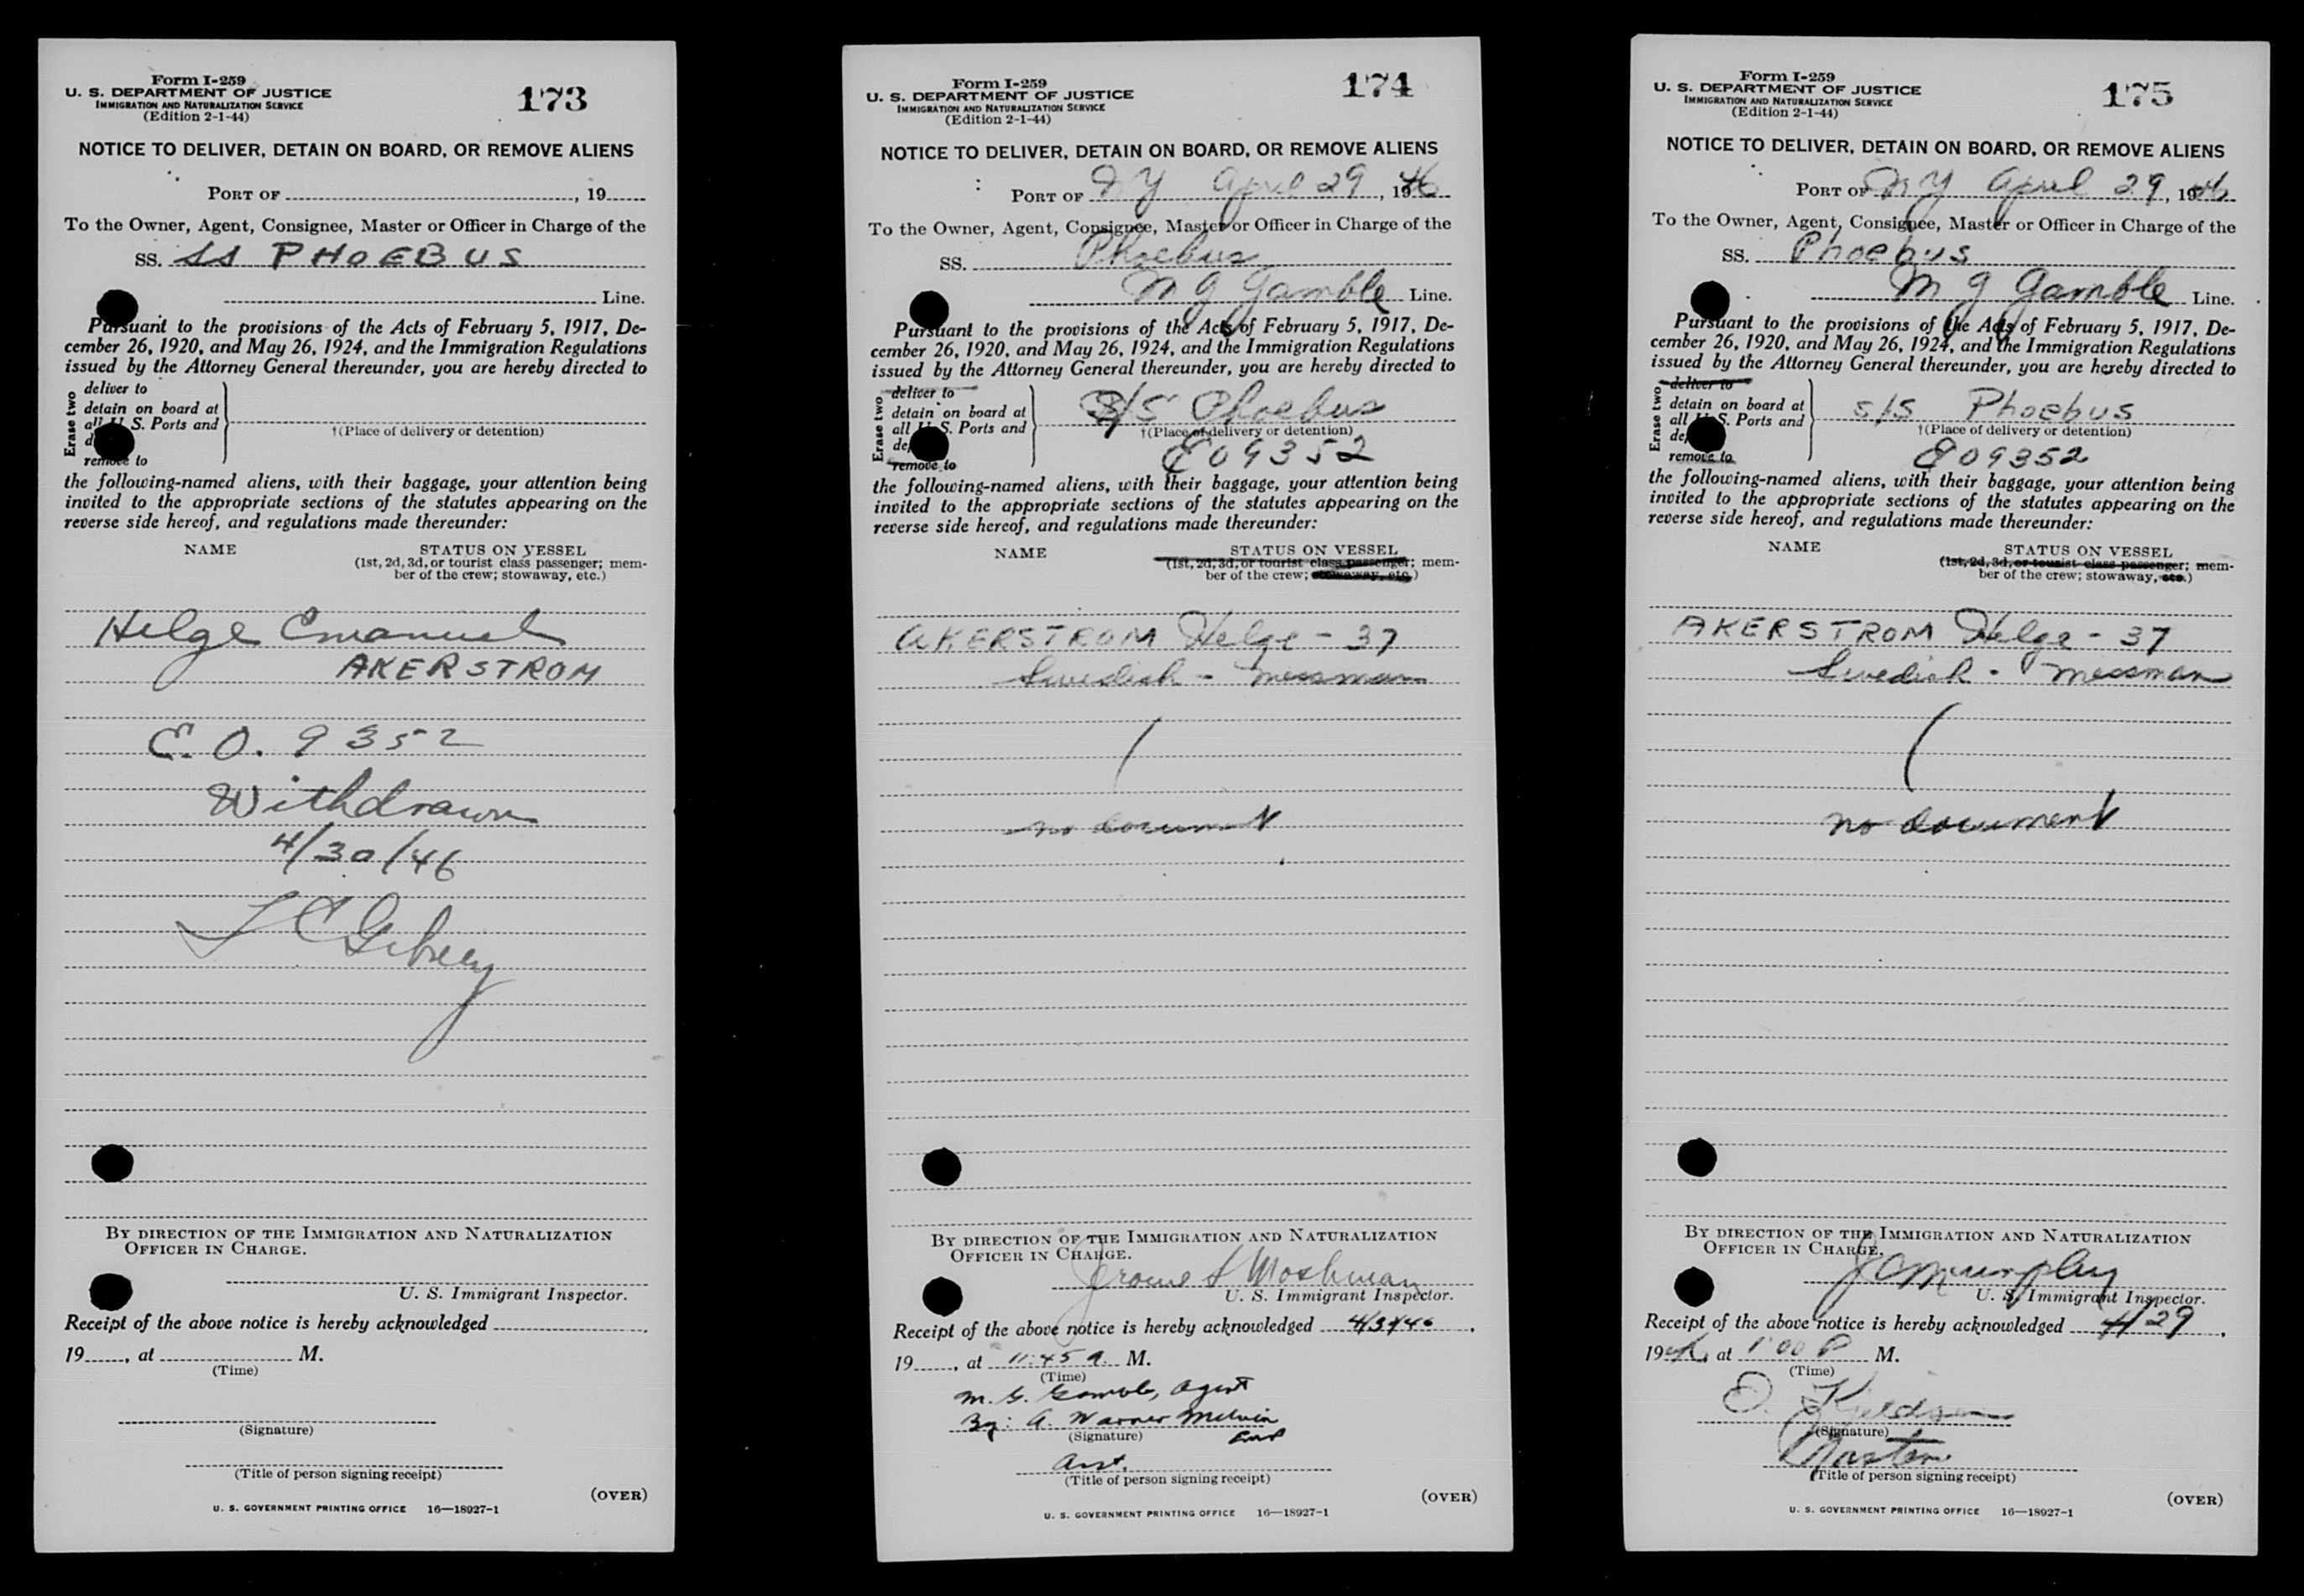 Form I-259
U. S. DEPARTMENT OF JUSTICE
IMMIGRATION AND NATURALIZATION SERVICE
(Edition 2-1-44)
173
NOTICE TO DELIVER, DETAIN ON BOARD, OR REMOVE ALIENS
PORT OF , 19
To the Owner, Agent, Consignee, Master or Officer in Charge of the
SS. SS PHOEBUS
Line.
Pursuant to the provisions of the Acts of February 5, 1917, De-
cember 26, 1920, and May 26, 1924, and the Immigration Regulations
issued by the Attorney General thereunder, you are hereby directed to
Erase two
deliver to
detain on board at
all U. S. Ports and
†(Place of delivery or detention)
remove to
the following-named aliens, with their baggage, your attention being
invited to the appropriate sections of the statutes appearing on the
reverse side hereof, and regulations made thereunder:
NAME STATUS ON VESSEL
(1st, 2d, 3d, or tourist class passenger; mem-
ber of the crew; stowaway, etc.)
Helge Emanuel
AKERSTROM
E. O. 9352
Withdrawn
4/30/46
BY DIRECTION OF THE IMMIGRATION AND NATURALIZATION
OFFICER IN CHARGE.
U. S. Immigrant Inspector.
Receipt of the above notice is hereby acknowledged
19 , at M.
(Time)
(Signature)
(Title of person signing receipt)
(OVER)
U. S. GOVERNMENT PRINTING OFFICE 16—18927-1
Form I-259
U. S. DEPARTMENT OF JUSTICE
IMMIGRATION AND NATURALIZATION SERVICE
(Edition 2-1-44)
174
NOTICE TO DELIVER, DETAIN ON BOARD, OR REMOVE ALIENS
PORT OF NY April 29, 1946
To the Owner, Agent, Consignee, Master or Officer in Charge of the
SS. Phoebus
M G Gamble Line.
Pursuant to the provisions of the Acts of February 5, 1917, De-
cember 26, 1920, and May 26, 1924, and the Immigration Regulations
issued by the Attorney General thereunder, you are hereby directed to
Erase two
deliver to
detain on board at S/S Phoebus
all U. S. Ports and
†(Place of delivery or detention)
remove to EO9352
the following-named aliens, with their baggage, your attention being
invited to the appropriate sections of the statutes appearing on the
reverse side hereof, and regulations made thereunder:
NAME STATUS ON VESSEL
(1st, 2d, 3d, or tourist class passenger; mem-
ber of the crew; stowaway, etc.)
AKERSTROM Helge - 37
Swedish - messman
no document
BY DIRECTION OF THE IMMIGRATION AND NATURALIZATION
OFFICER IN CHARGE.
Jerome Moshman
U. S. Immigrant Inspector.
Receipt of the above notice is hereby acknowledged
19 , at 11:45 a. M.
(Time)
M. G. Gamble, Agent
By: A. Warner Melvin
(Signature)
Asst.
(Title of person signing receipt)
(OVER)
U. S. GOVERNMENT PRINTING OFFICE 16—18927-1
Form I-259
U. S. DEPARTMENT OF JUSTICE
IMMIGRATION AND NATURALIZATION SERVICE
(Edition 2-1-44)
175
NOTICE TO DELIVER, DETAIN ON BOARD, OR REMOVE ALIENS
PORT OF NY April 29, 1946
To the Owner, Agent, Consignee, Master or Officer in Charge of the
SS. Phoebus
M G Gamble Line.
Pursuant to the provisions of the Acts of February 5, 1917, De-
cember 26, 1920, and May 26, 1924, and the Immigration Regulations
issued by the Attorney General thereunder, you are hereby directed to
Erase two
deliver to
detain on board at S/S Phoebus
all U. S. Ports and
†(Place of delivery or detention)
remove to EO9352
the following-named aliens, with their baggage, your attention being
invited to the appropriate sections of the statutes appearing on the
reverse side hereof, and regulations made thereunder:
NAME STATUS ON VESSEL
(1st, 2d, 3d, or tourist class passenger; mem-
ber of the crew; stowaway, etc.)
AKERSTROM Helge - 37
Swedish - messman
no document
BY DIRECTION OF THE IMMIGRATION AND NATURALIZATION
OFFICER IN CHARGE.
J C Murphy
U. S. Immigrant Inspector.
Receipt of the above notice is hereby acknowledged 4/29,
1946, at 1:00 P M.
(Time)
(Signature)
Master
(Title of person signing receipt)
(OVER)
U. S. GOVERNMENT PRINTING OFFICE 16—18927-1